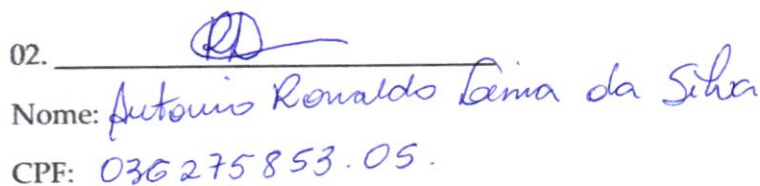 02.
Nome: Antonio Ronaldo Lima da Silva
CPF: 036275853.05.